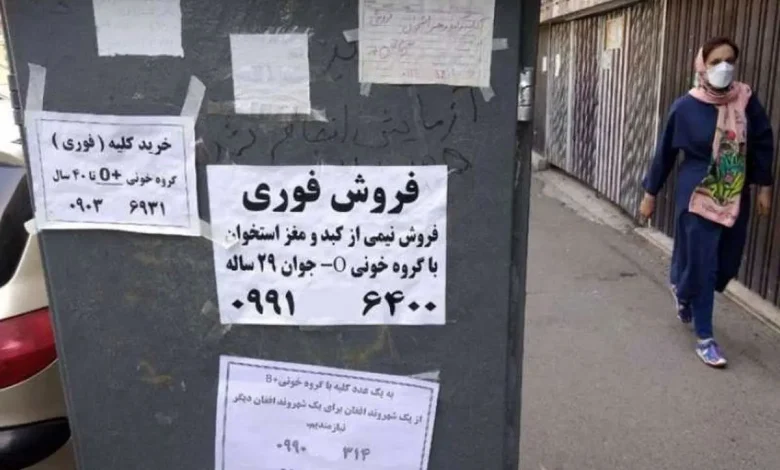 خرید کلیه ( فوری )
گروه خونی +O تا ۴۰ سال
۰۹۰۳ ۶۹۳۱
فروش فوری
فروش نیمی از کبد و مغز استخوان
با گروه خونی O- جوان ۲۹ ساله
۰۹۹۱ ۶۴۰۰
به یک عدد کلیه با گروه خونی +B
از یک شهروند افغان برای یک شهروند افغان دیگر
نیازمندیم.
۰۹۹۰ ۳۱۴